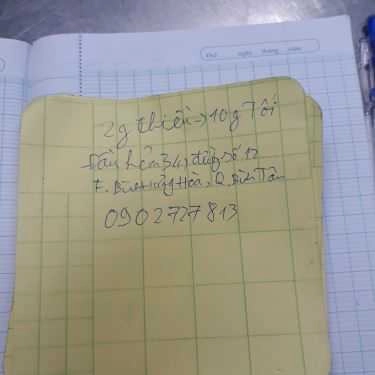 Thứ ngày tháng năm
2g thiếu → 10g Tối
hẻm 341 đường số 12
F. Bình Hưng Hòa, Q. Bình Tân
0902727813